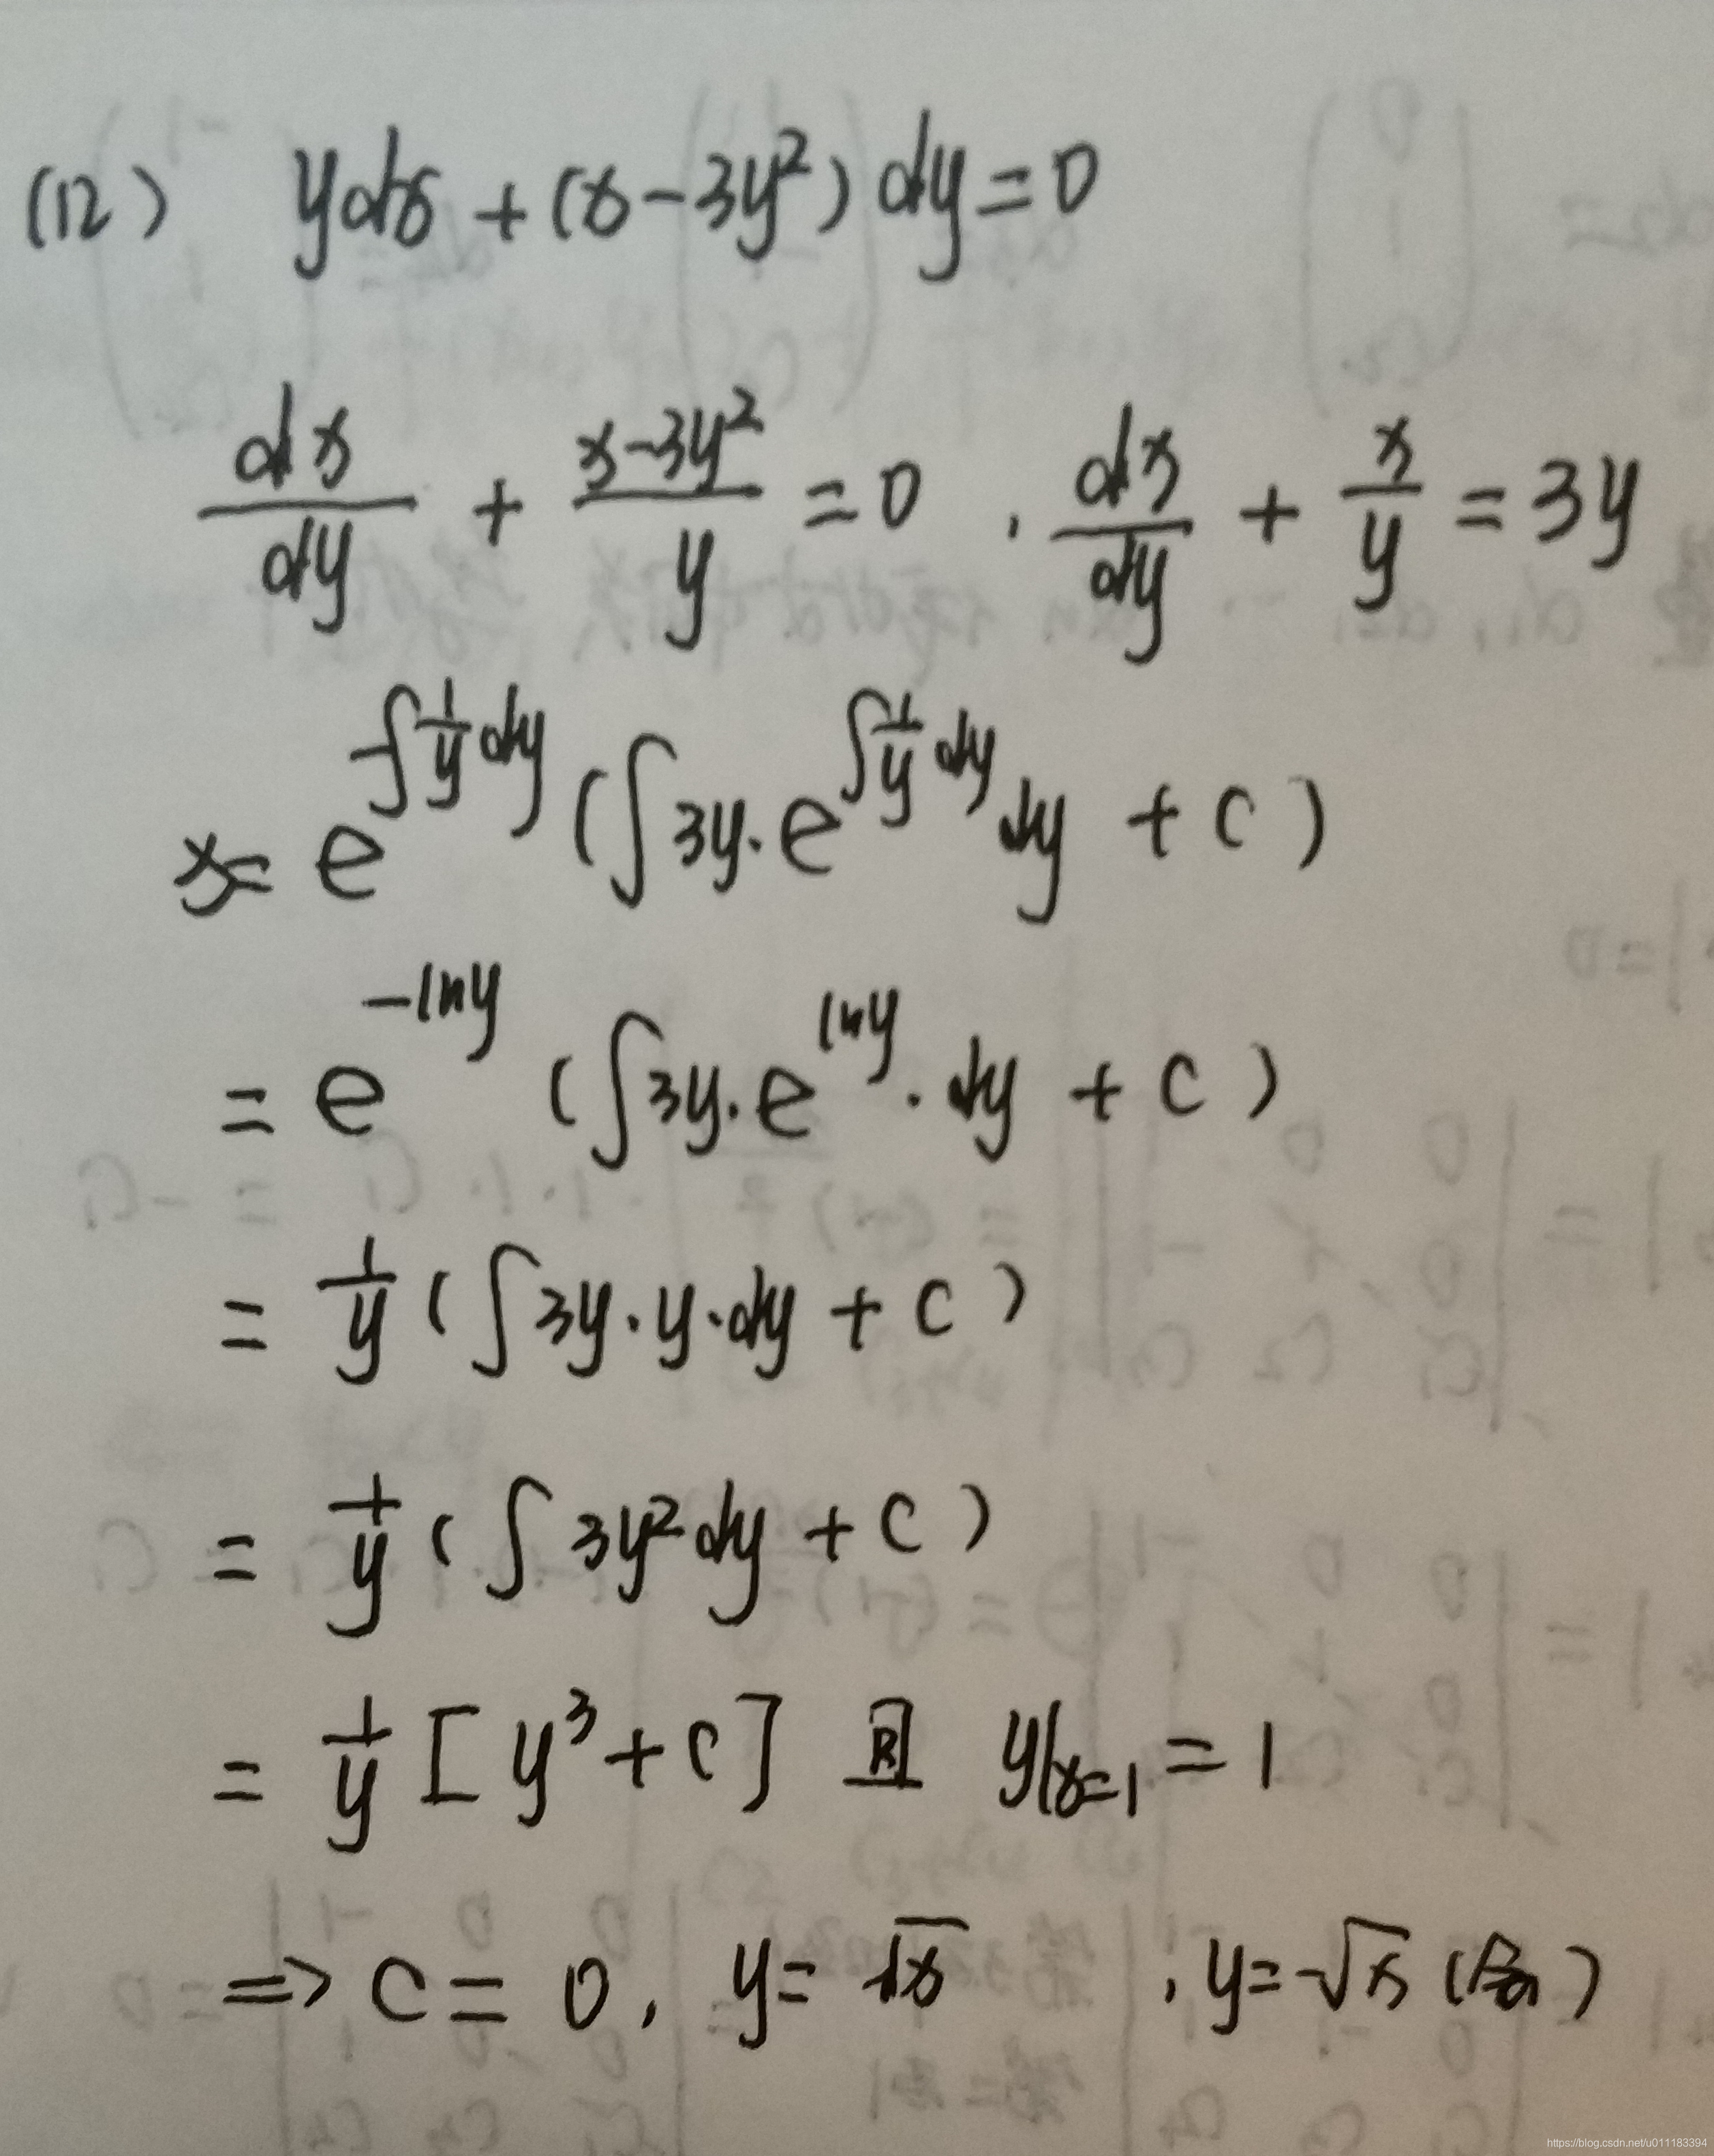 (12) ydx + (x-3y²) dy = 0
dx/dy + (x-3y²)/y = 0 , dx/dy + x/y = 3y
x = e^(-∫(1/y)dy) (∫3y·e^(∫(1/y)dy) dy + C)
= e^(-lny) (∫3y·e^(lny)·dy + C)
= 1/y (∫3y·y·dy + C)
= 1/y (∫3y²dy + C)
= 1/y [y³ + C] 因 y|x=1 = 1
⇒ C = 0, y = √x , y = -√x (舍)
https://blog.csdn.net/u011183394